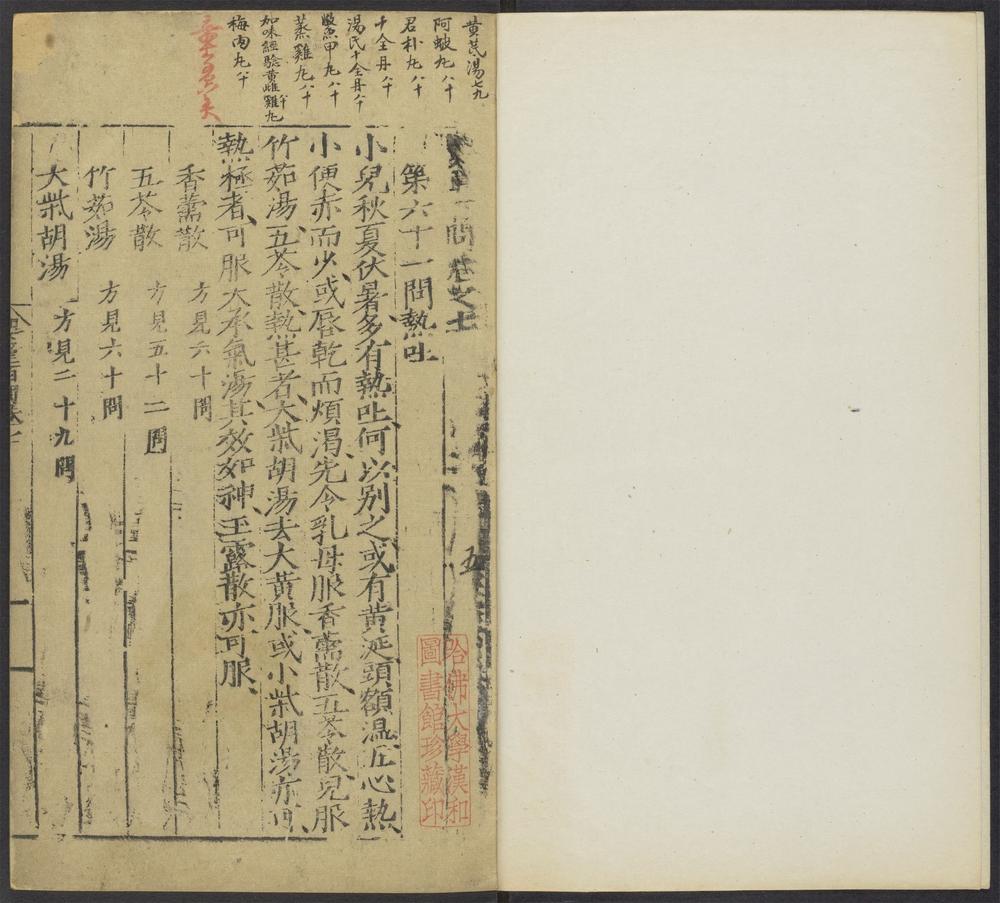 黄芪湯七九
阿蚾丸八十
君朴丸八十
十全丹八十
湯氏十全丹八十
鱉甲丸八十
蒸雞丸八十
加味經驗黄雌雞丸八十
梅肉丸八十
問卷之十
五
第六十一問熱吐
小兒秋夏伏暑多有熱吐何以别之或有黄涎頭額温五心熱
小便赤而少或唇乾而煩渴先令乳母服香薷散五苓散兒服
竹茹湯五苓散熱甚者大柴胡湯去大黄服或小柴胡湯亦可
熱極者可服大承氣湯其效如神玉露散亦可服
香薷散 方見六十問
五苓散 方見五十二問
竹茹湯 方見六十問
大柴胡湯 方見二十九問
哈佛大學漢和
圖書館珍藏印